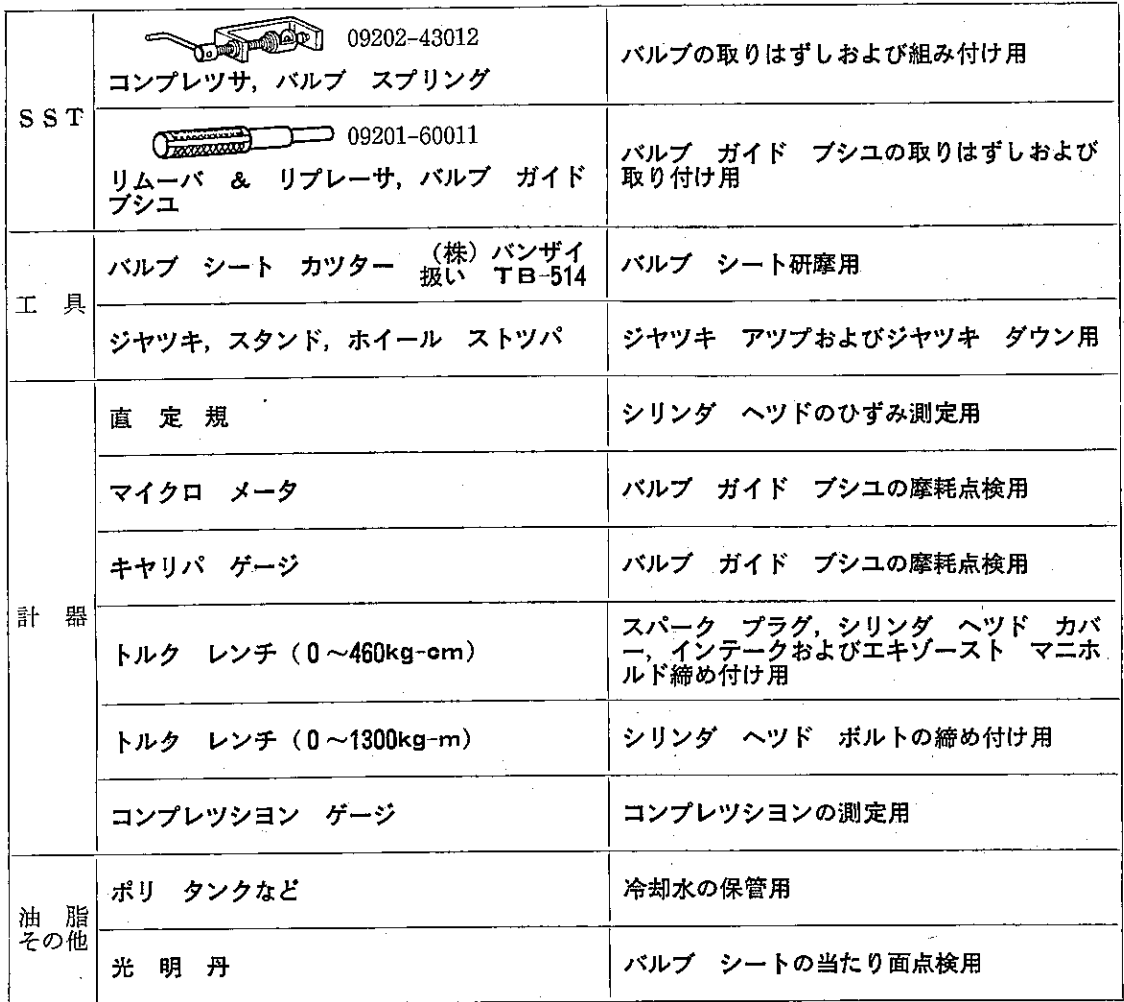 SST
09202-43012
コンプレツサ, バルブ スプリング
バルブの取りはずしおよび組み付け用
09201-60011
リムーバ & リプレーサ, バルブ ガイド
ブシユ
バルブ ガイド ブシユの取りはずしおよび
取り付け用
工具
バルブ シート カツター (株)バンザイ
扱い TB-514
バルブ シート研摩用
ジヤツキ, スタンド, ホイール ストツパ
ジヤツキ アツプおよびジヤツキ ダウン用
計器
直定規
シリンダ ヘツドのひずみ測定用
マイクロ メータ
バルブ ガイド ブシユの摩耗点検用
キヤリパ ゲージ
バルブ ガイド ブシユの摩耗点検用
トルク レンチ (0~460kg-cm)
スパーク プラグ, シリンダ ヘツド カバ
ー, インテークおよびエキゾースト マニホ
ルド締め付け用
トルク レンチ (0~1300kg-m)
シリンダ ヘツド ボルトの締め付け用
コンプレツシヨン ゲージ
コンプレツシヨンの測定用
油脂
その他
ポリ タンクなど
冷却水の保管用
光明丹
バルブ シートの当たり面点検用